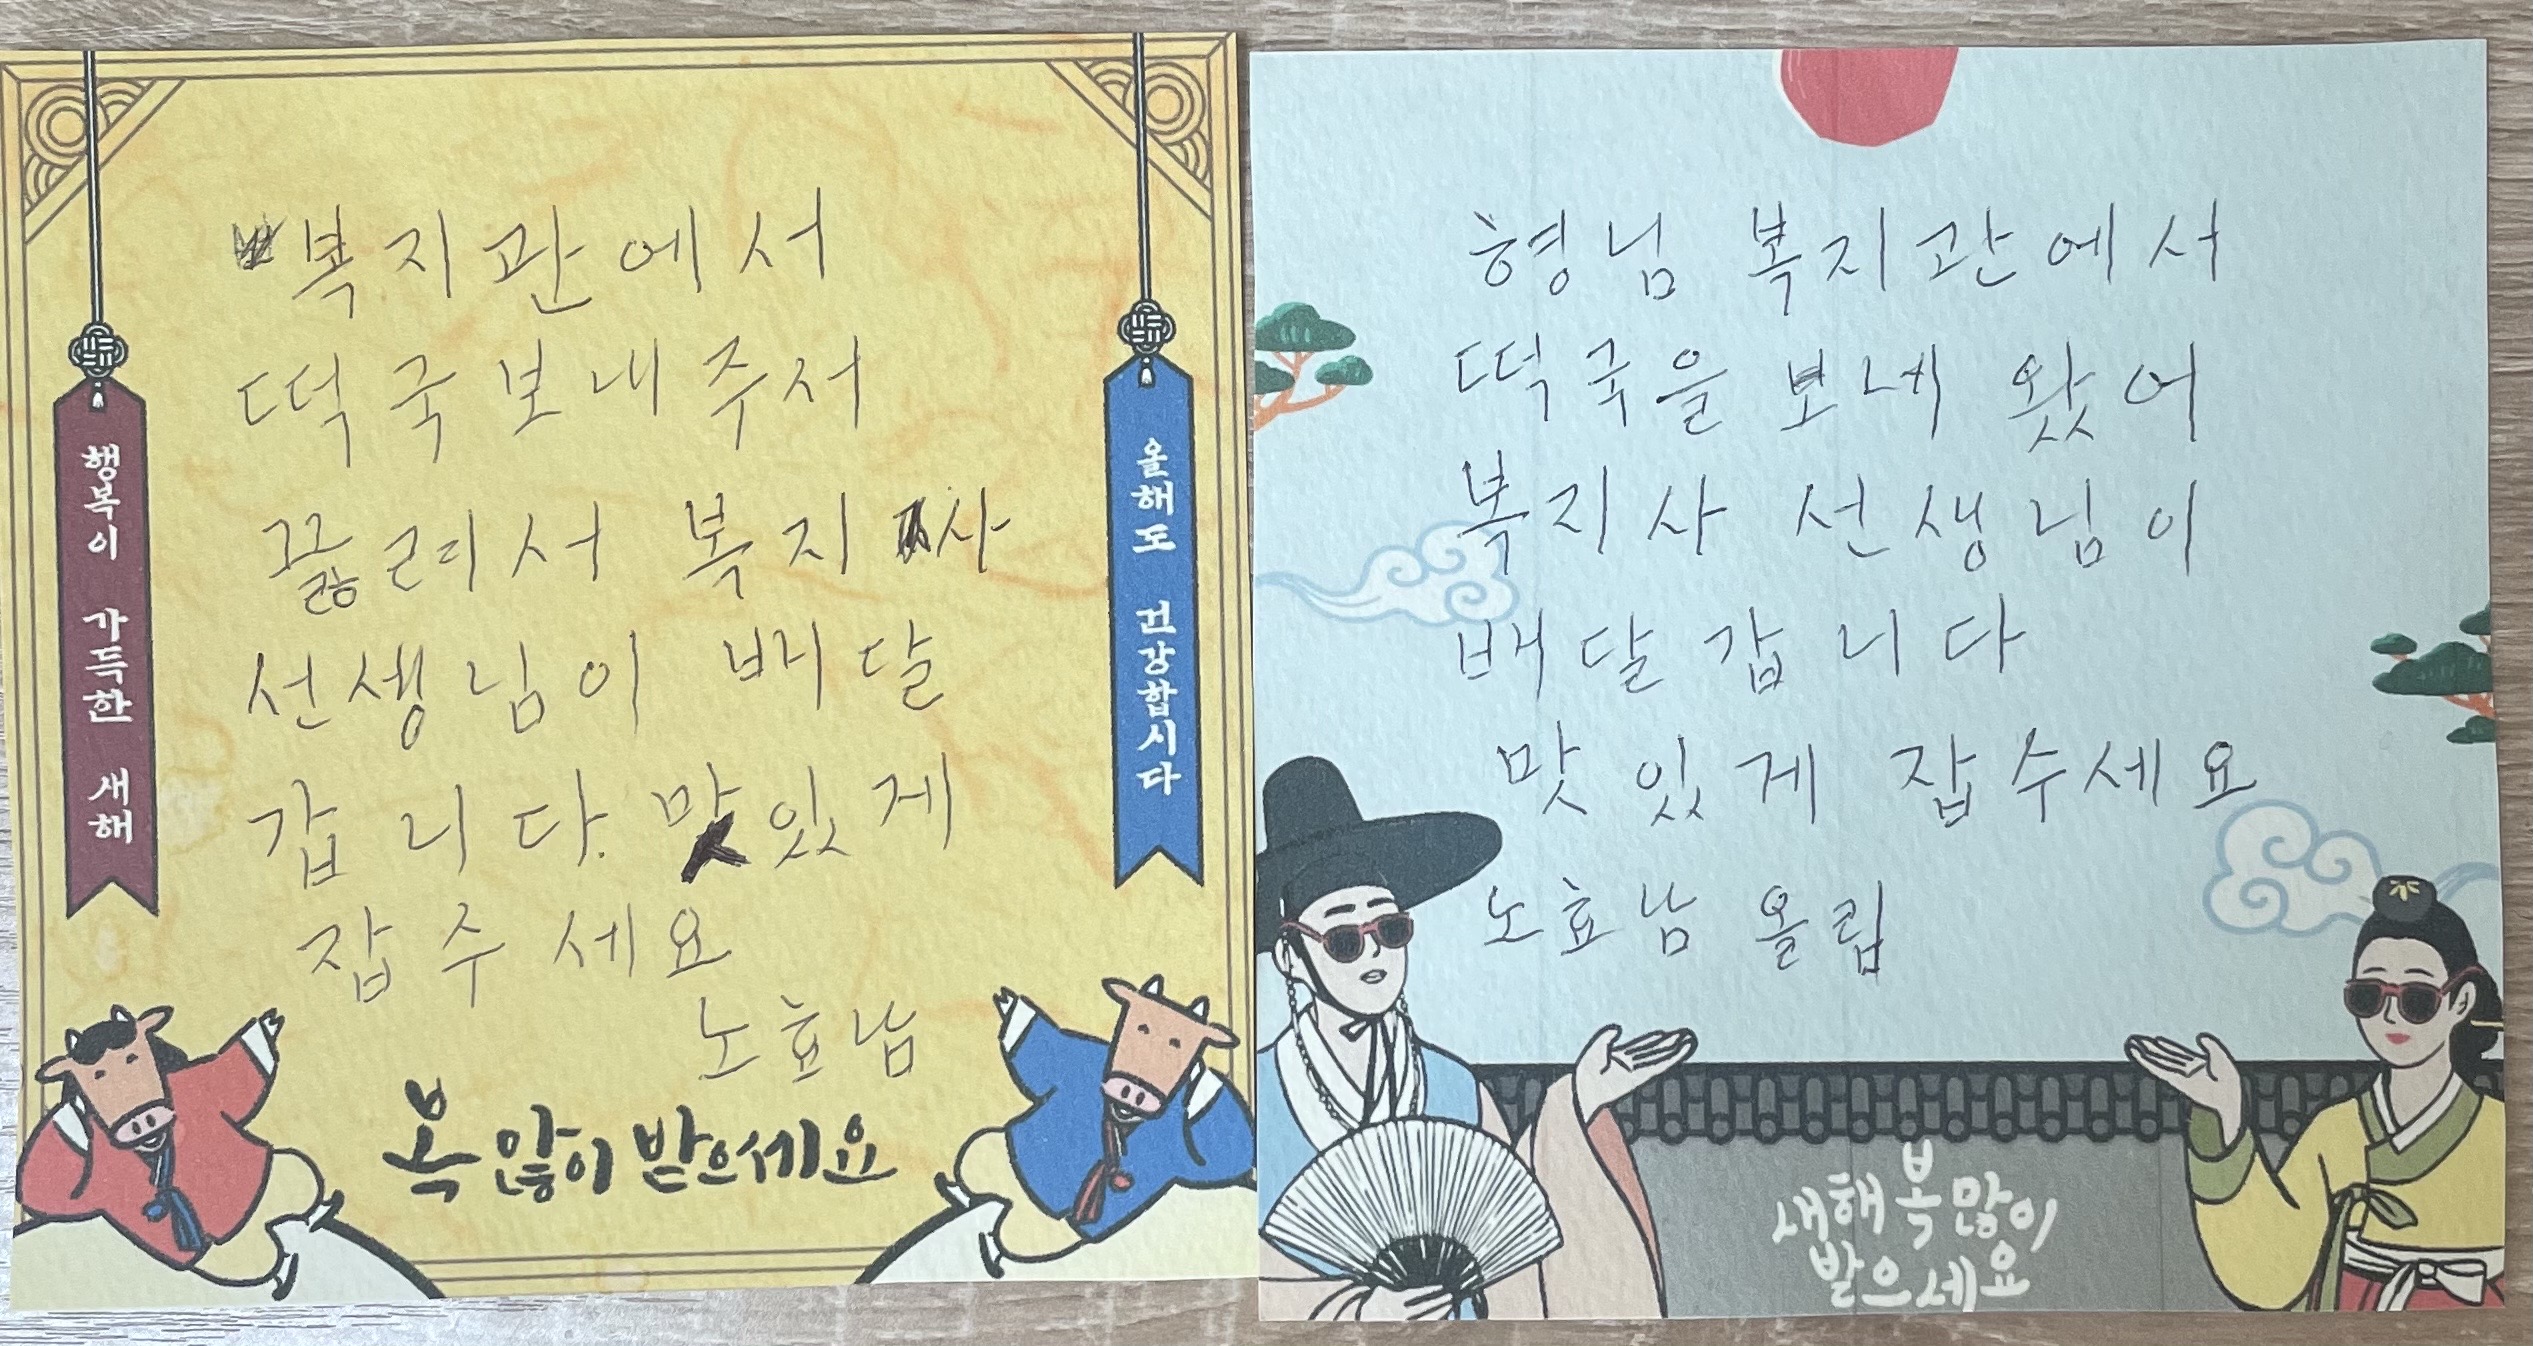 복지관에서
떡국보내주서
끓려서 복지사
선생님이 배달
갑니다. 맛있게
잡수세요
노효남
행복이 가득한 새해
올해도 건강합시다
복 많이 받으세요
형님 복지관에서
떡국을 보네 왔어
복지사 선생님이
배달갑니다
맛있게 잡수세요
노효남 올립
새해 복 많이
받으세요